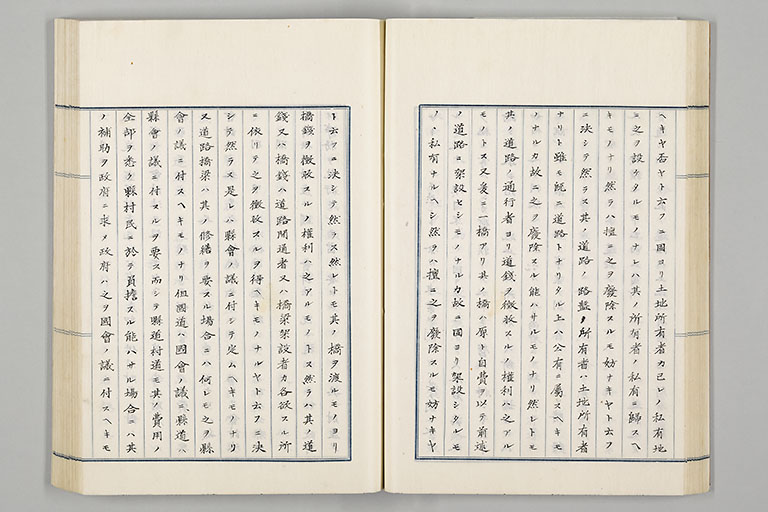 ヘキヤ否ヤト云フニ固ヨリ土地所有者カ己レノ私有地
ニ之ヲ設ケタルモノナレハ其ノ所有者ノ私有ニ歸スヘ
キモノナリ然ラハ擅ニ之ヲ廢除スルモ妨ナキヤト云フ
ニ決シテ然ラス其ノ道路ノ路盤ノ所有者ハ土地所有者
ナリト雖モ既ニ道路トナリタル上ハ公有ニ屬スヘキモ
ノナルカ故ニ之ヲ廢除スル能ハサルモノナリ然レトモ
其ノ道路ノ通行者ヨリ道錢ヲ徴收スルノ權利ハ之アル
モノトス又爰ニ一橋アリ其ノ橋ハ原ト自費ヲ以テ前述
ノ道路ニ架設セシモノナルカ故ニ固ヨリ架設シタルモ
ノヽ私有ナルヘシ然ラハ擅ニ之ヲ廢除スルモ妨ナキヤ
ト云フニ決シテ然ラス然レトモ其ノ橋ヲ渡ルモノヨリ
橋錢ヲ徴收スルノ權利ハ之アルモノトス然ラハ其ノ道
錢又ハ橋錢ハ道路開通者又ハ橋梁架設者カ各欲スル所
ニ依リテ之ヲ徴收スルヲ得ヘキモノナルヤト云フニ決
シテ然ラス是レハ縣會ノ議ニ付シテ定ムヘキモノナリ
又道路橋梁ハ其ノ修繕ヲ要スル場合ニハ何レモ之ヲ縣
會ノ議ニ付スヘキモノナリ但國道ハ國會ノ議ニ縣道ハ
縣會ノ議ニ付スルヲ要ス而シテ縣道村道モ其ノ費用ノ
全部ヲ悉ク縣村民ニ於テ負擔スル能ハサル場合ニハ其
ノ補助ヲ政府ニ求メ政府ハ之ヲ國會ノ議ニ付スヘキモ